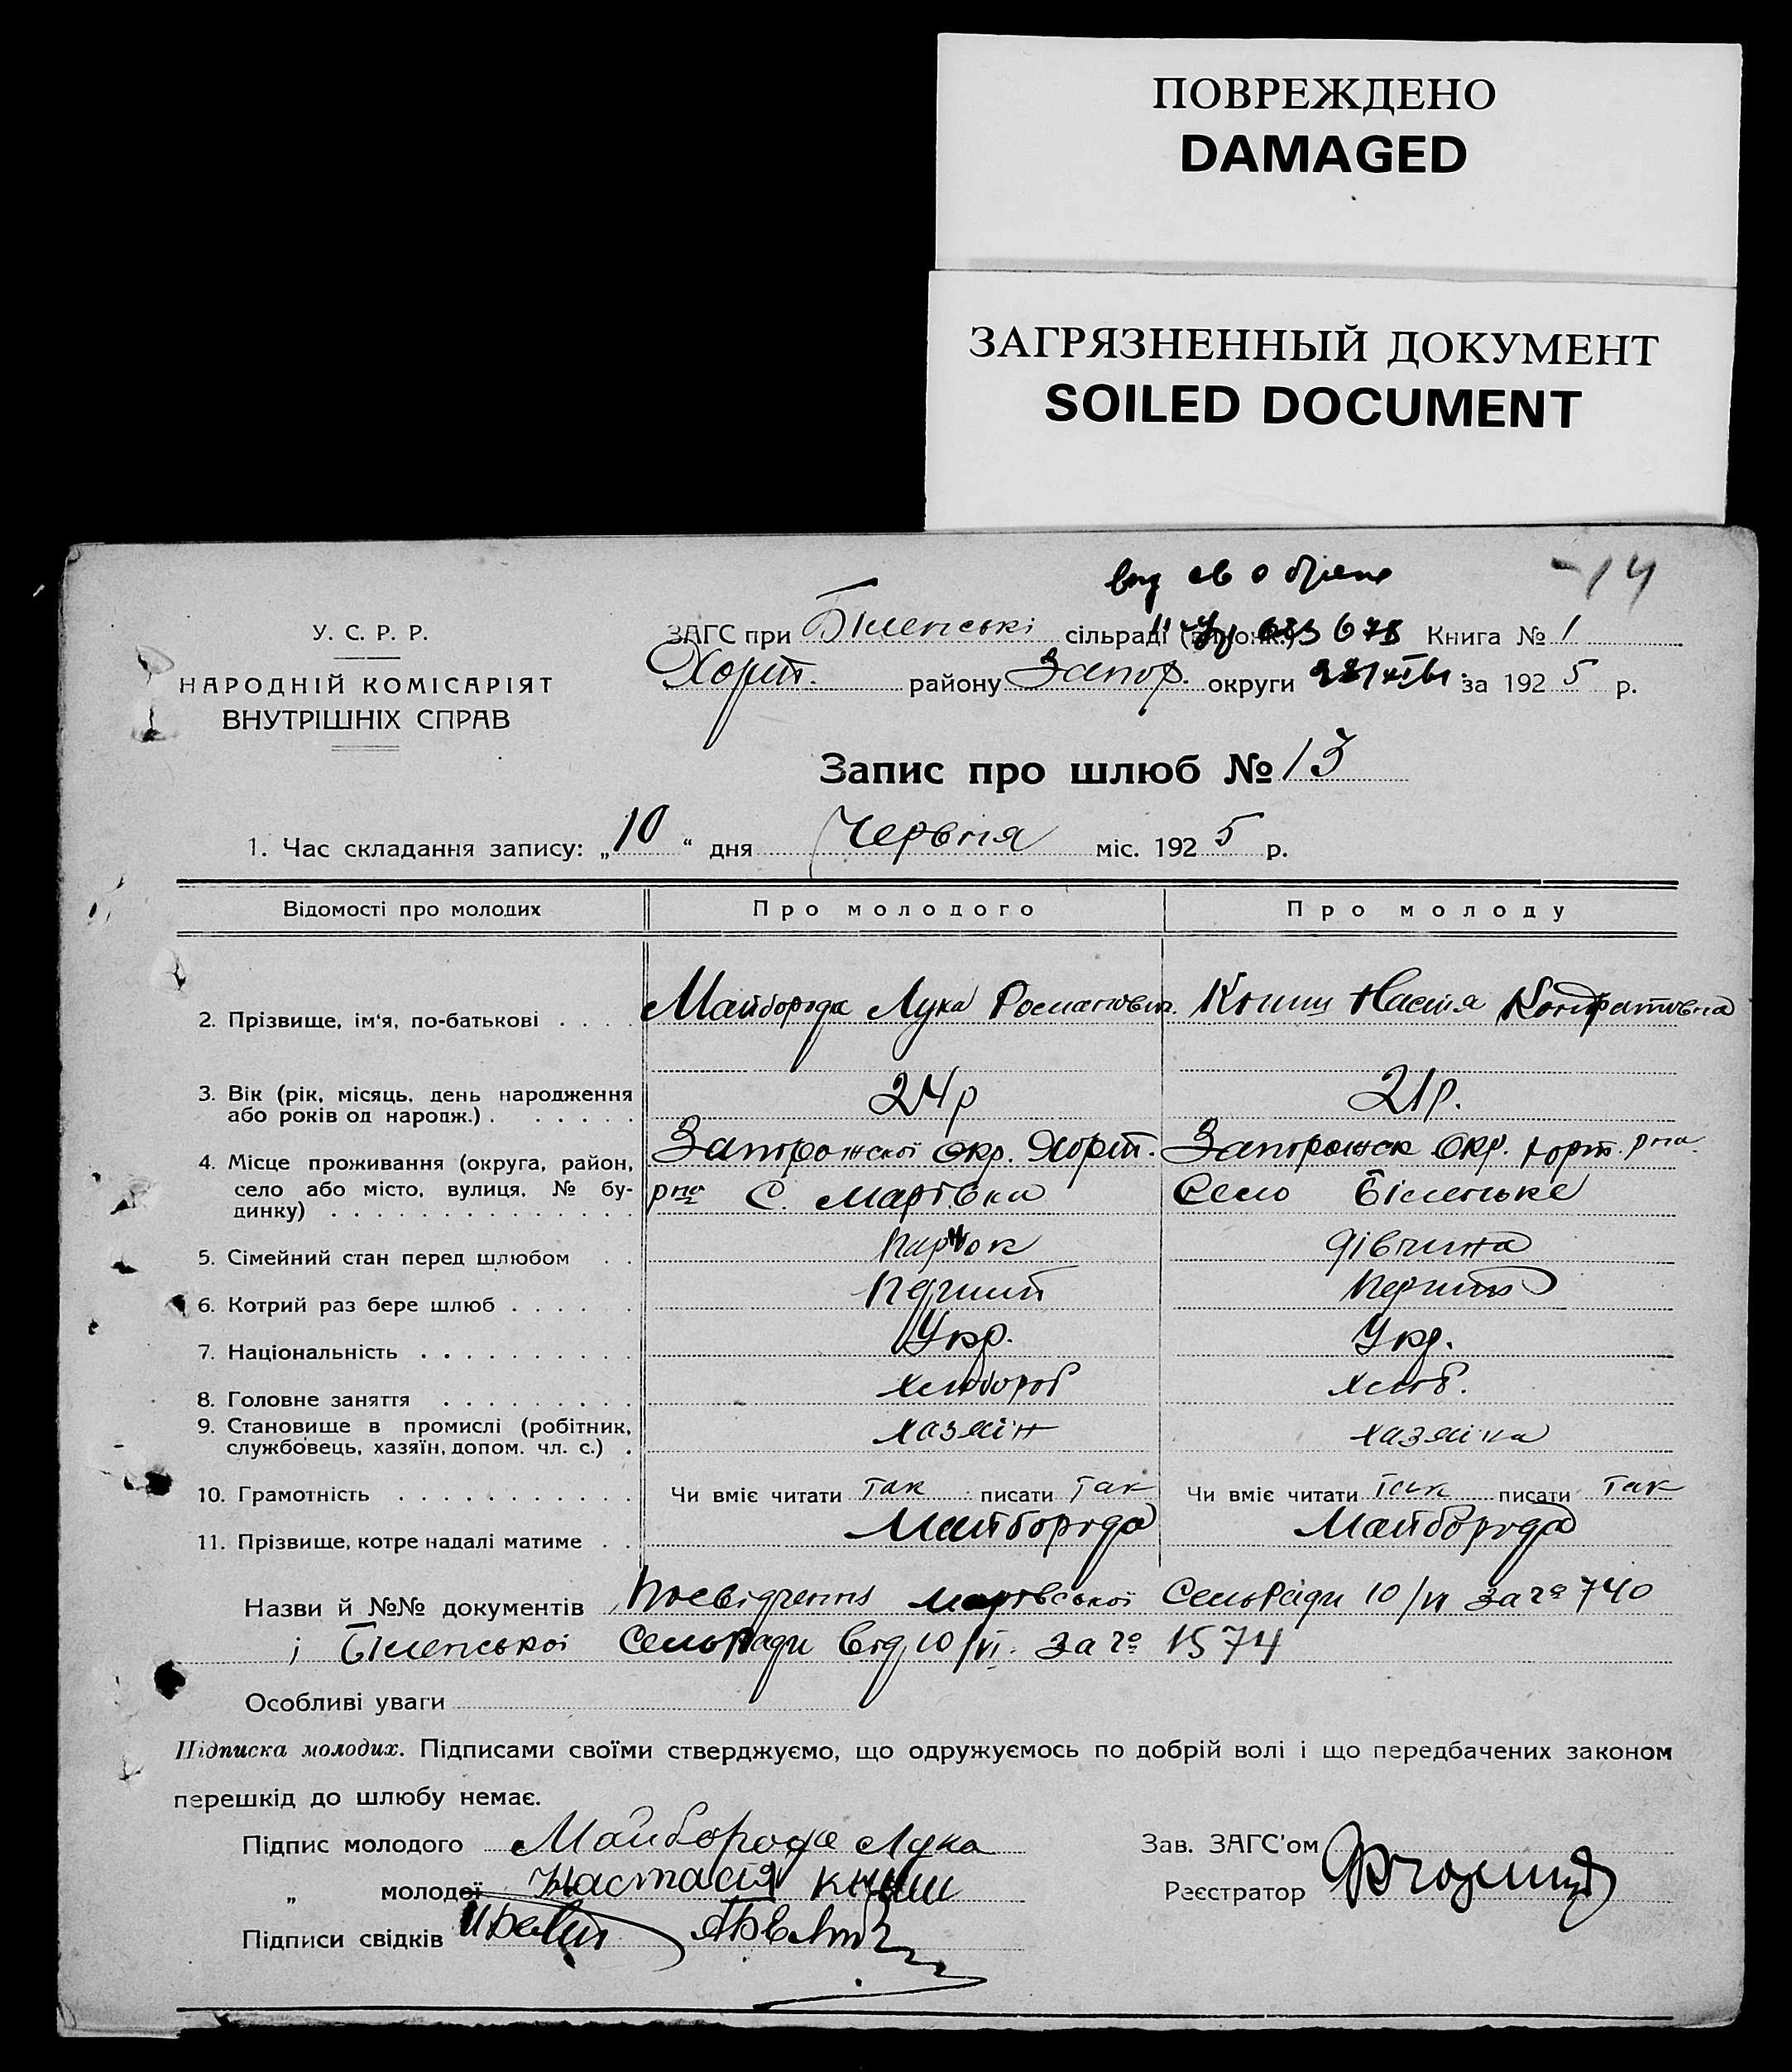 ПОВРЕЖДЕНО
DAMAGED
ЗАГРЯЗНЕННЫЙ ДОКУМЕНТ
SOILED DOCUMENT
14
У. С. Р. Р.
НАРОДНІЙ КОМІСАРІЯТ
ВНУТРІШНІХ СПРАВ
ЗАГС при Біленські сільраді Книга № 1
Хорт. району Запор. округи за 1925 р.
Запис про шлюб № 13
1. Час складання запису: „10“ дня Червня міс. 1925 р.
Відомості про молодих Про молодого Про молоду
2. Прізвище, ім‘я, по-батькові . . . . Майборода Лука Романович. Книш Настя Кондратовна
3. Вік (рік, місяць, день народження
або років од народж.) . . . . . . 24р 21р.
4. Місце проживання (округа, район, Запорожскої Окр. Хорт. Запорожск Окр. Хорт. рна
село або місто, вулиця, № бу- рна С. Марївки Село Біленьке
динку) . . . . . . . . . . . . . .
5. Сімейний стан перед шлюбом . . Парубок дівчина
6. Котрий раз бере шлюб . . . . . . Перший Перший
7. Національність . . . . . . . . . . Укр. Укр.
8. Головне заняття . . . . . . . . . Хлібороб Хліб.
9. Становище в промислі (робітник,
службовець, хазяїн, допом. чл. с.) . хазяїн хазяїка
10. Грамотність . . . . . . . . . . . Чи вміє читати так писати так Чи вміє читати так писати так
11. Прізвище, котре надалі матиме . . Майборода Майборода
Назви й №№ документів Посвідчення Марївської СельРади 10/VI за № 740
і Біленської СельРади від 10/VI. за № 1574
Особливі уваги
Підписка молодих. Підписами своїми стверджуємо, що одружуємось по добрій волі і що передбачених законом
перешкід до шлюбу немає.
Підпис молодого Майборода Лука Зав. ЗАГС'ом
„ молодої Настасія Книш Реєстратор
Підписи свідків